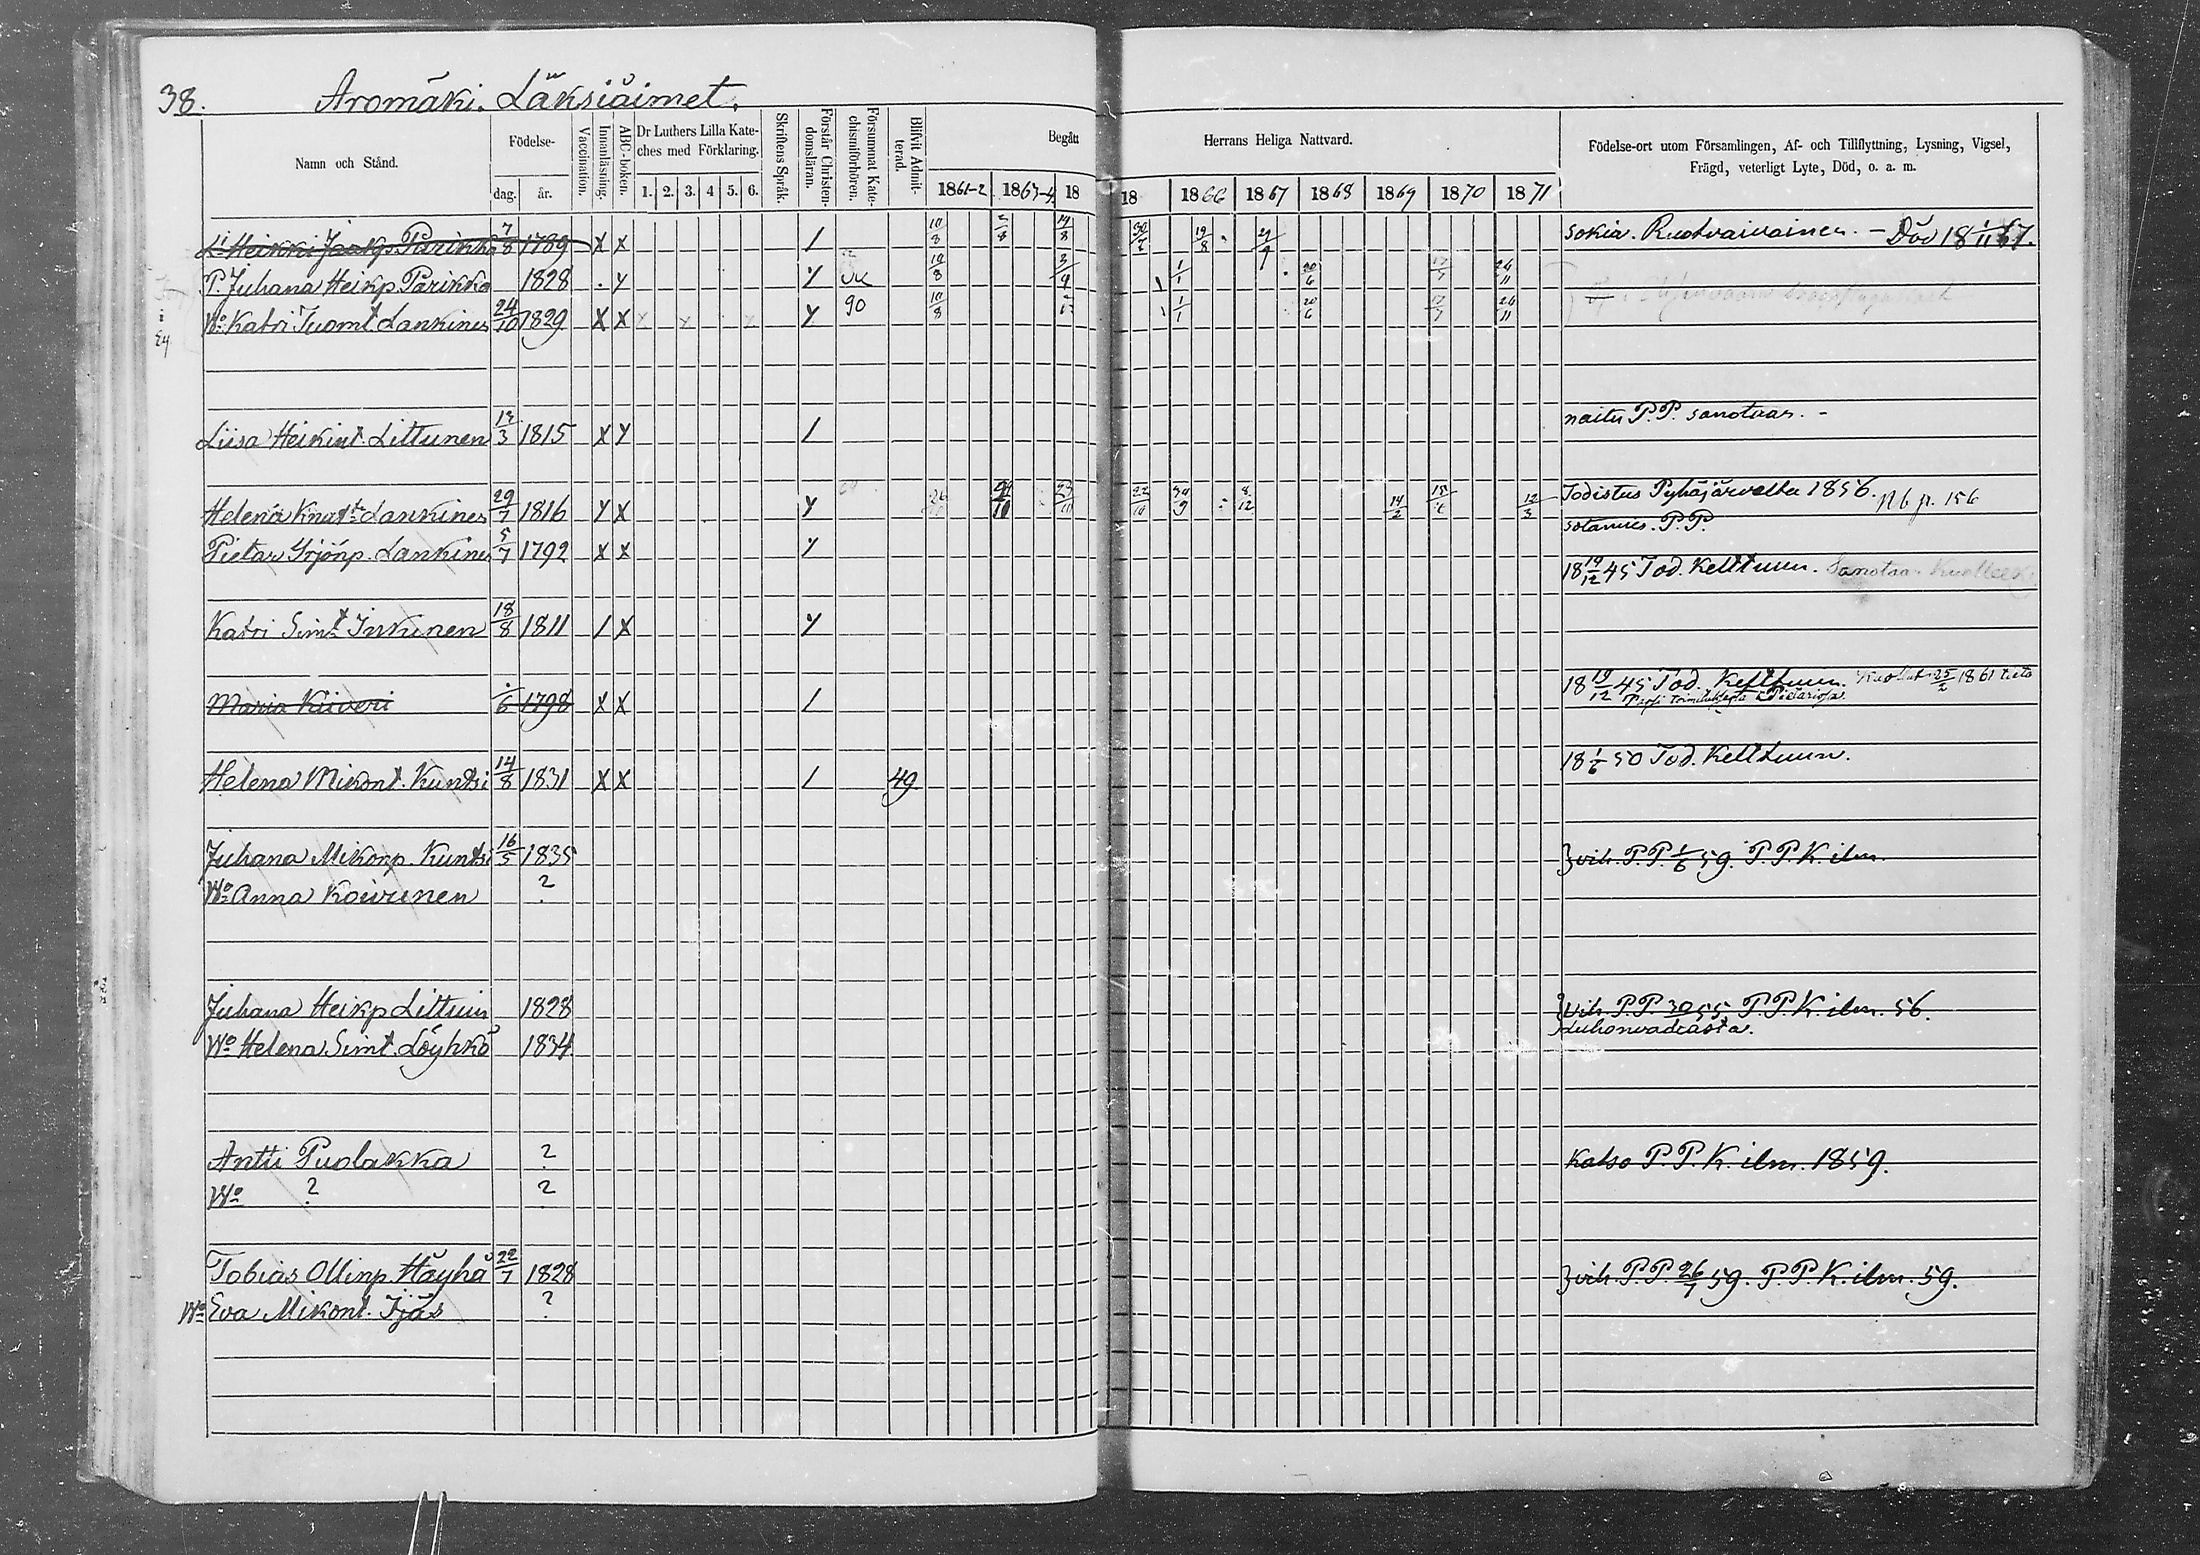 38. Aromäki. Läksiäimet.
Namn och Stånd.
Födelse-
dag. år.
Vaccination.
Innanläsning.
ABC-boken.
Dr Luthers Lilla Kate-
ches med Förklaring.
1. 2. 3. 4 5. 6.
Skriftens Språk.
Förstår Christen-
domsläran.
Försummat Kate-
chismiförhören.
Blifvit Admit-
terad.
Begått Herrans Heliga Nattvard.
1861-2 1863-4 18 18 1866 1867 1868 1869 1870 1871
Födelse-ort utom Församlingen, Af- och Tillflyttning, Lysning, Vigsel,
Frägd, veterligt Lyte, Död, o. a. m.
Heikki Jaakp. Parikka 7/8 1789 X X / 10/8 19/8 sokia. Ruotvaivainen. - Död 18 1/11 67.
P. Juhana Heikp. Parikka 1828 . y y 10/8 3/9 1/1 20/6 17/7 26/11
Wo Katri Tuomt Lankinen 24/10 1829 X X y 90 10/8 1/1 20/6 17/7 26/11
Liisa Heikint Littunen 13/3 1815 X y / naitu P.P. sanotaan. -
Helena Knutt Lankinen 29/7 1816 y X y 22/10 8/12 14/2 12/3 Todistus Pyhäjärveltä 1856. Nb p. 156
Pietar Yrjönp. Lankinen 5/7 1792 X X y sotamies. P.P.
18 19/12 45 Tod. Kelttuun. Sanotaa Kuolleeksi
Katri Simt Inkinen 18/8 1811 / X y
Maria Kiiveri 6 1798 X X / 18 19/12 45 Tod. Kelttuun. Kuollut 25/2 1861
Helena Mikont. Kuntsi 14/8 1831 X X / 49 18 1/6 50 Tod. Kelttuun.
Juhana Mikonp. Kuntsi 16/5 1835 vih. P.P. 1/6 59. P.P.K. ilm.
Wo Anna Koivunen ?
Juhana Heikp Littuin 1828 vih. P.P. 55. P.P.K. ilm. 56.
Wo Helena Simt. Löyhkö 1834
Antti Puolakka ? Katso P.P.K. ilm. 1859.
Wo ? ?
Tobias Ollinp. Häyhä 22/7 1828 vih. P.P. 26/7 59. P.P.K. ilm. 59.
Wo Eva Mikont. Ijäs ?